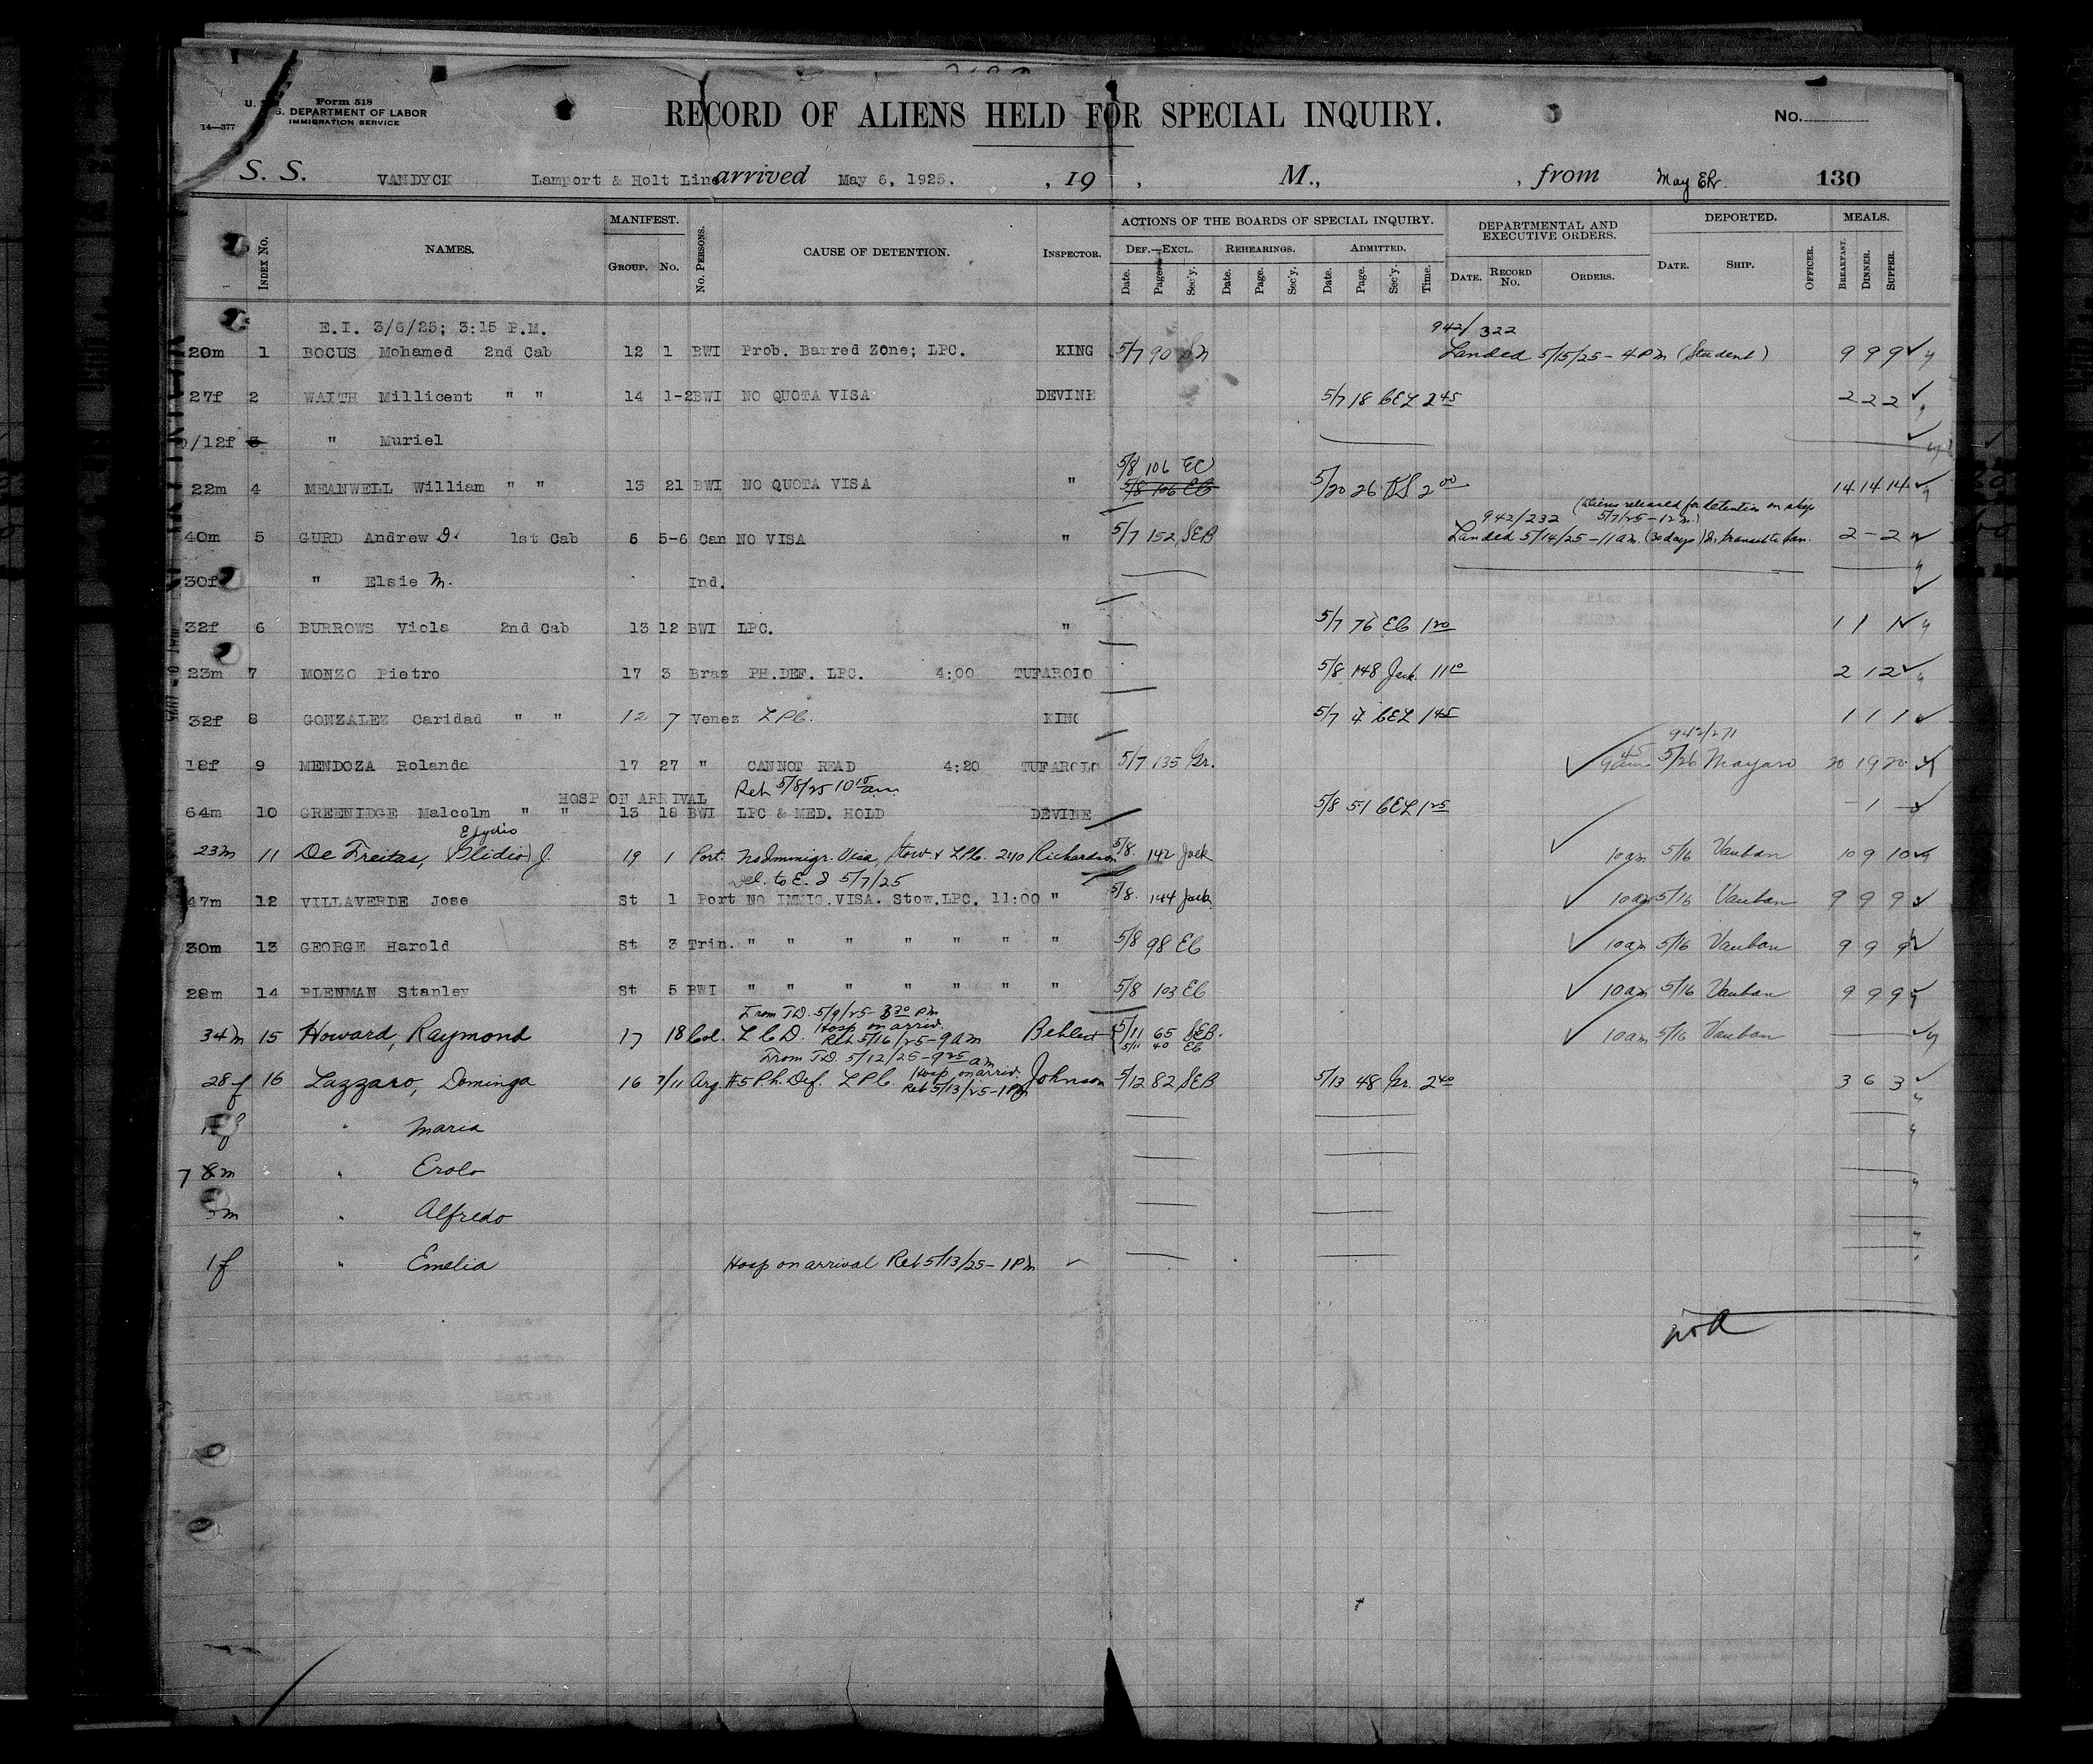 Form 518
U. S. DEPARTMENT OF LABOR
IMMIGRATION SERVICE
14—377
RECORD OF ALIENS HELD FOR SPECIAL INQUIRY.
No.
S. S. VANDYCK Lamport & Holt Line arrived May 6, 1925. , 19 , M., , from May ER. 130
INDEX No. NAMES. MANIFEST. GROUP. No. No. PERSONS. CAUSE OF DETENTION. INSPECTOR. ACTIONS OF THE BOARDS OF SPECIAL INQUIRY. DEF.—EXCL. Date. Page. Sec'y. REHEARINGS. Date. Page. Sec'y. ADMITTED. Date. Page. Sec'y. Time. DEPARTMENTAL AND EXECUTIVE ORDERS. DATE. RECORD No. ORDERS. DEPORTED. DATE. SHIP. OFFICER. MEALS. BREAKFAST. DINNER. SUPPER.
E.I. 3/6/25; 3:15 P.M. 942/322
20m 1 BOCUS Mohamed 2nd Cab 12 1 BWI Prob. Barred Zone; LPC. KING 5/7 90 Landed 5/15/25 - 4 PM (Student) 9 9 9
27f 2 WAITH Millicent " " 14 1-2 BWI NO QUOTA VISA DEVINE 5/7 18 CEL 2 45 2 2 2
/12f 3 " Muriel
5/8 106 EC
22m 4 MEANWELL William " " 13 21 BWI NO QUOTA VISA " 5/8 106 EC 5/20 26 2 00 14 14 14
(Aliens released for detention on ship
942/232 5/7/25 - 12 n.)
40m 5 GURD Andrew D. 1st Cab 6 5-6 Can NO VISA " 5/7 152 SEB Landed 5/14/25 - 11 am. (30 days) In transit to Can. 2 - 2
30f " Elsie M. Ind.
32f 6 BURROWS Viola 2nd Cab 13 12 BWI LPC. " 5/7 76 EC 1 20 1 1 1
23m 7 MONZO Pietro 17 3 Braz PH.DEF. LPC. 4:00 TUFAROLO 5/8 148 Jack 11 10 2 1 2
32f 8 GONZALEZ Caridad " " 12 7 Venez LPC. KING 5/7 4 CEL 1 45 1 1 1
942/271
18f 9 MENDOZA Rolanda 17 27 " CANNOT READ 4:20 TUFAROLO 5/7 135 Gr. 9 45 am 5/26 Mayaro 20 19 20
HOSP ON ARRIVAL Reh 5/8/25 10 15 am
64m 10 GREENIDGE Malcolm " " 13 18 BWI LPC & MED. HOLD DEVINE 5/8 51 CEL 1 25 - 1 -
Elydio
23m 11 De Freitas, (Olidio) J. 19 1 Port. No Immigr. Visa, Stow. & LPC. 240 Richardson 5/8. 142 Jack 10 am 5/16 Vauban 10 9 10
to E. I 5/7/25
47m 12 VILLAVERDE Jose St 1 Port NO IMMIG.VISA. Stow.LPC. 11:00 " 5/8. 144 Jack 10 am 5/16 Vauban 9 9 9
30m 13 GEORGE Harold St 3 Trin. " " " " " " " 5/8 98 EC 10 am 5/16 Vauban 9 9 9
28m 14 BLENMAN Stanley St 5 BWI " " " " " " " 5/8 103 EC 10 am 5/16 Vauban 9 9 9
From T.D. 5/9/25 - 3 30 PM
Hosp on arriv.
34m 15 Howard, Raymond 17 18 Col. L C D. Reh 5/16/25 - 9 am 5/11 65 SEB. 10 am 5/16 Vauban
5/11 40 EC
From T.D. 5/12/25 - 9 25 am
Hosp on arriv.
28f 16 Lazzaro, Dominga 16 7/11 Arg. #5 Ph. Def. LPC. Reh 5/13/25 - 1 PM Johnson 5/12 82 SEB 5/13 48 Gr. 2 40 3 6 3
" Maria
7 8m " Erolo
m " Alfredo
1f " Emelia Hosp on arrival Reh 5/13/25 - 1 PM